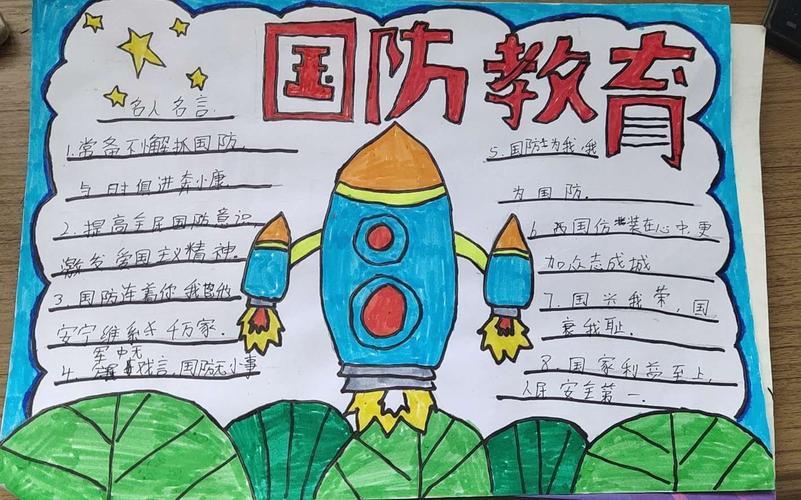 国防教育
名人名言.
1.常备不懈抓国防.
与时俱进奔小康.
2.提高全民国防意识
激发爱国主义精神.
3 国防连着你我他
安宁维系千万家.
军中无
4. 戏言,国防无小事
5.国防为我,我
为国防.
6.国仿装在心中.更
加众志成城
7.国兴我荣,国
衰我耻.
8.国家利益至上,
人民安全第一.